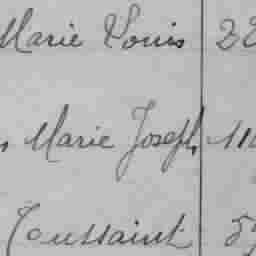 Marie Louis 22
Marie Joseph, 110
Toussaint 59